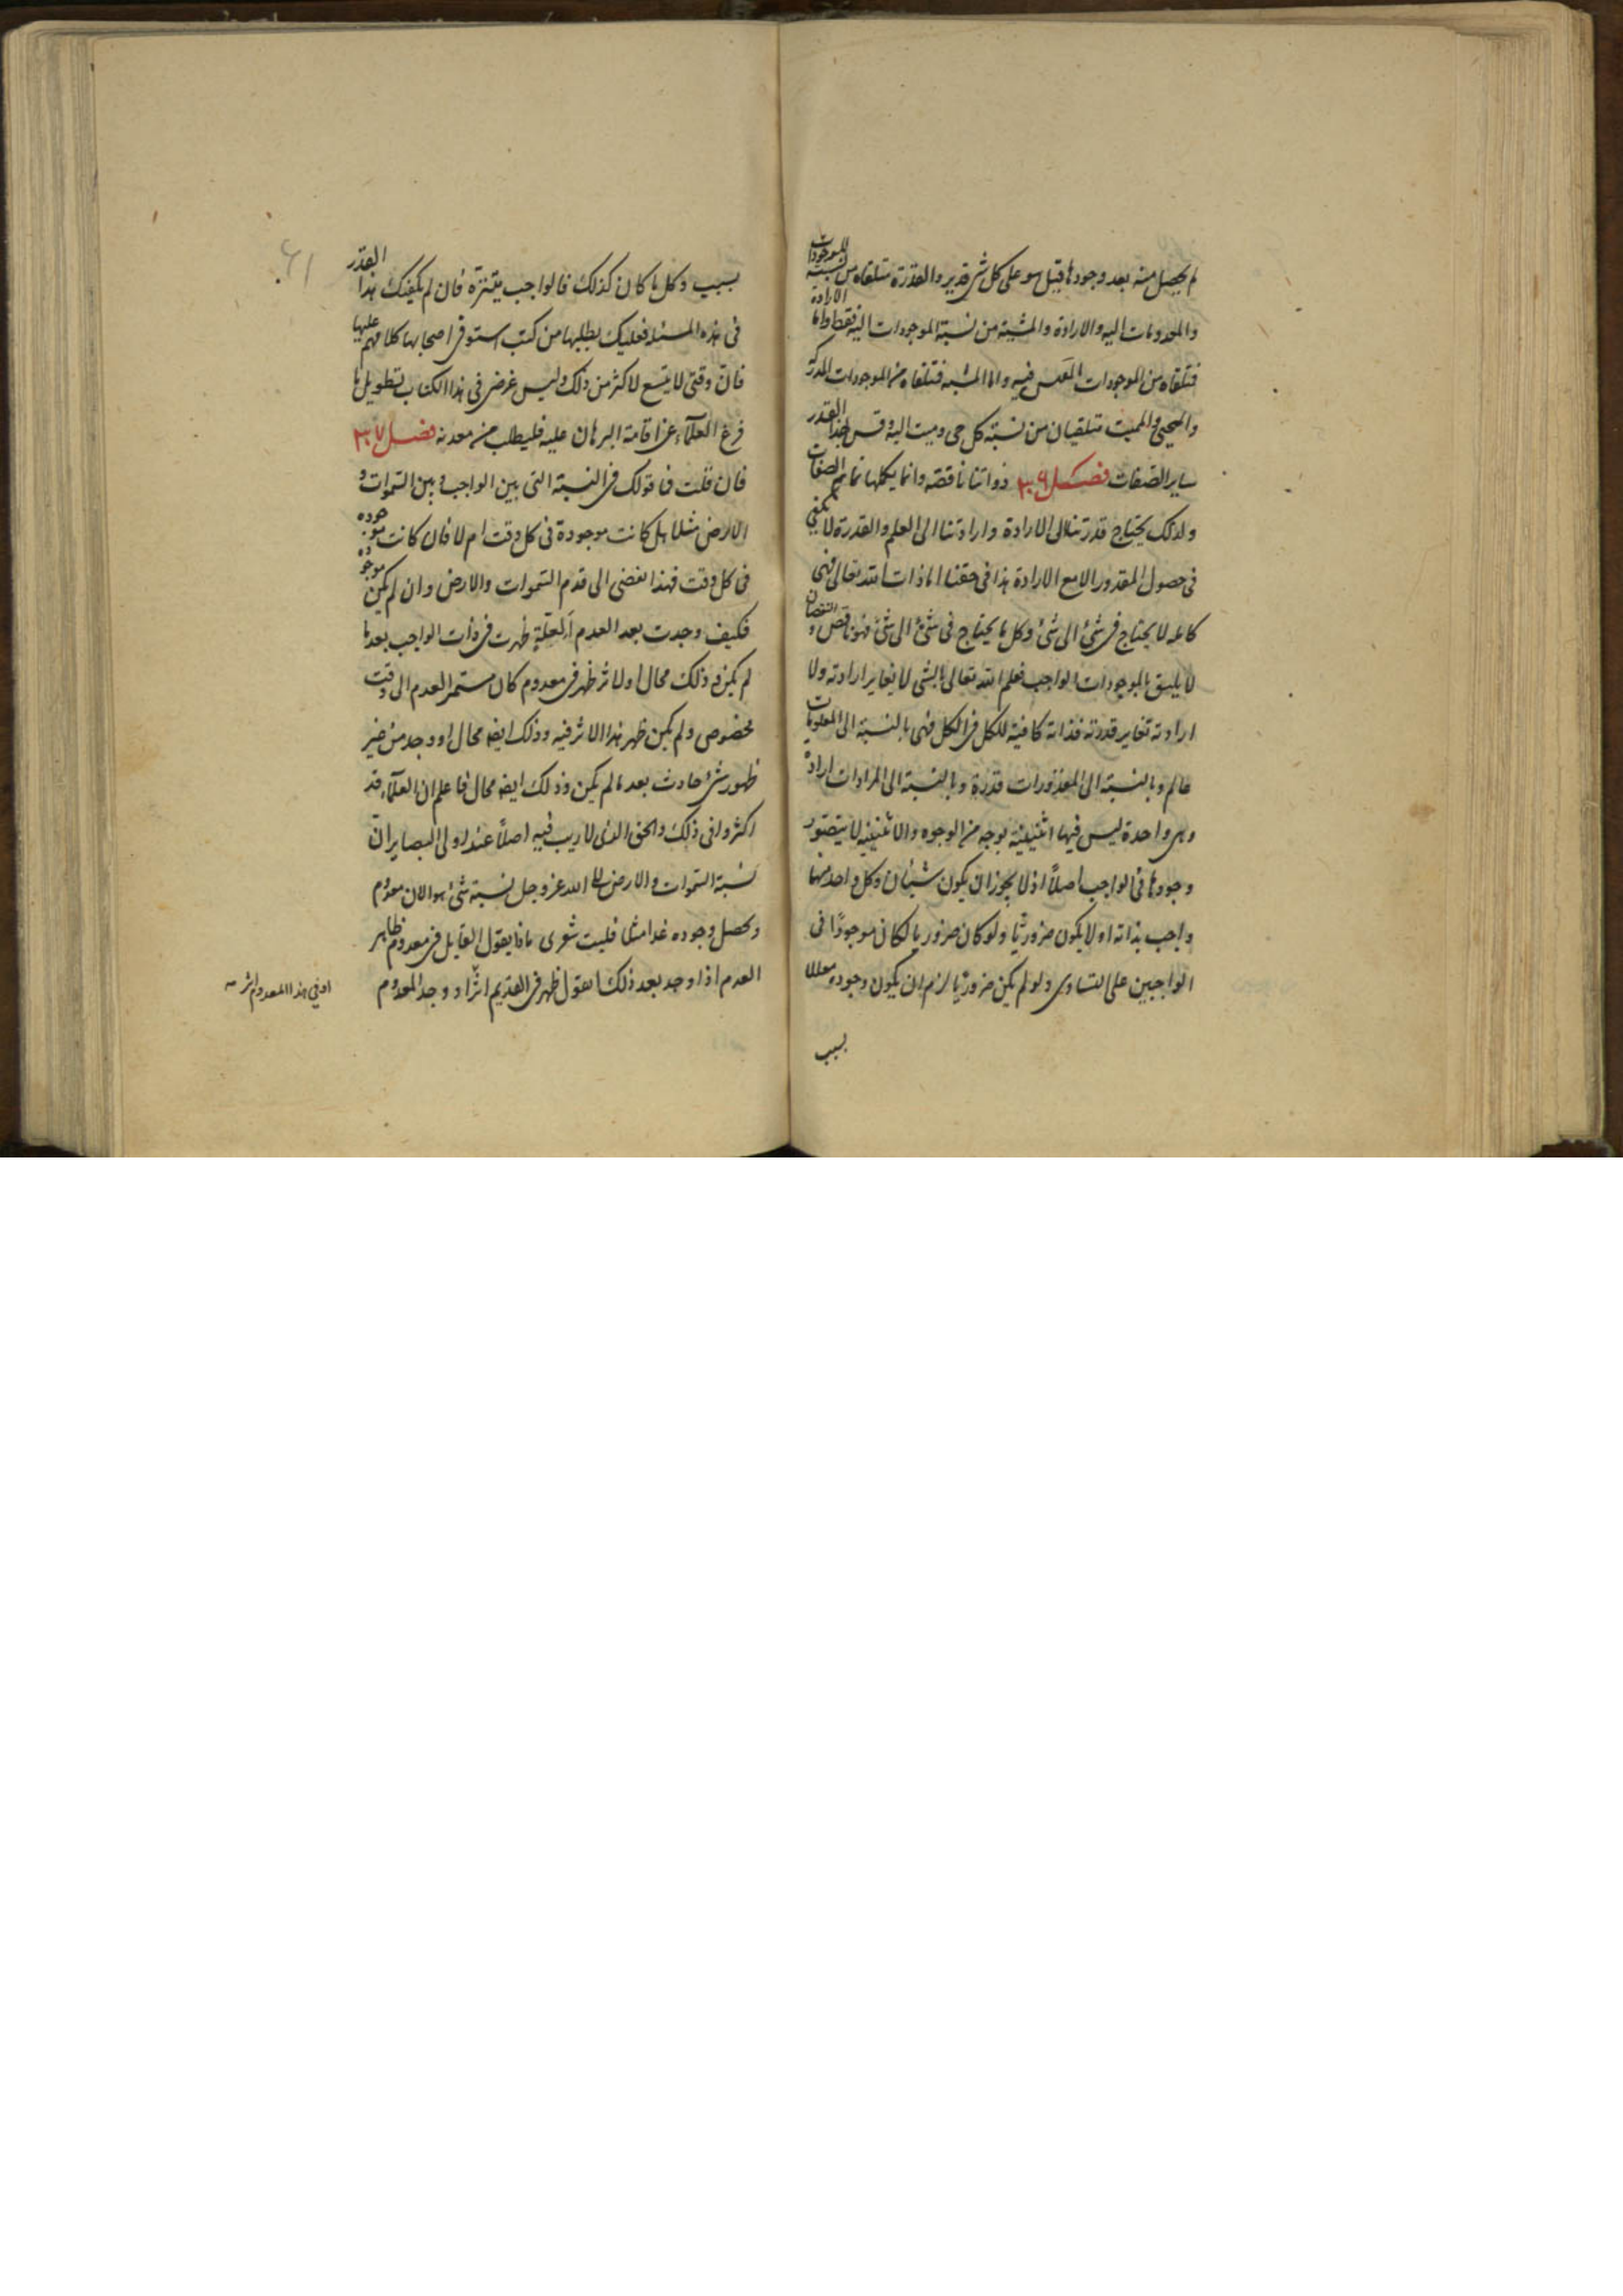 لم يحصل منه بعد وجودها قيل هو على كل شئ قدير والقدرة متلقاه من نسبة الموجودات
والمعدومات اليه والارادة والمشية من نسبة الموجودات اليه فقط واما الارادة
فتلقاه من الموجودات فيه واما المشية فتلقاه من الموجودات المدركة
والمحيى والمميت متلقيان من نسبة كل حى وميت اليه وقس بهذا القدر
ساير الصفات فصل ٣٠٩ ذواتنا ناقصه وانما يكملها تمام الصفات
ولذلك يحتاج قدرتنا الى الارادة وارادتنا الى العلم والقدرة لا تكفي
فى حصول المقدور الا مع الارادة هذا فى حقنا اما ذات الله تعالى فهى
كاملة لا يحتاج فى شئ الى شئ وكل ما يحتاج فى شئ الى شئ فهو ناقص و النقصان
لا يليق بالموجودات الواجب فعلم الله تعالى بالشى لا يغاير ارادته ولا
ارادته تغاير قدرته فذاته كافية للكل فى الكل فهى بالنسبة الى المعلومات
عالم وبالنسبة الى المقدورات قدرة وبالنسبة الى المرادات ارادة
وهى واحدة ليس فيها اثنينية بوجه من الوجوه والاثنينية لا يتصور
وجودها فى الواجب اصلاً اذ لا يجوز ان يكون شيئان وكل واحد منهما
واجب بذاته اولا يكون ضروريّا ولو كان ضروريا لكان موجودًا فى
الواجبين على التساوى ولو لم يكن ضروريّا لزم ان يكون وجوده معللا
بسبب
٦١
بسبب وكل ما كان كذلك فالواجب يتنزه فان لم يكفيك هذا القدر
فى هذه المسئلة فعليك بطلبها من كتب استوفى اصحابها كلامهم عليها
فانّ وقتى لا يتسع لاكثر من ذلك وليس غرضى فى هذا الكتاب تطويل ما
فرغ العلماء عن اقامة البرهان عليه فليطلب من معدنه فصل ٣٠٧
فان قلت فما قولك فى النسبة التى بين الواجب وبين السموات و
الارض مثلا هل كانت موجودة فى كل وقت ام لا فان كانت موجوده
فى كل وقت فهذا يفضى الى قدم السموات والارض وان لم يكن موجوده
فكيف وجدت بعد العدم ألعلة ظهرت فى ذات الواجب بعد ما
لم يكن فذلك محال او لاثر ظهر فى معدوم كان مستمر العدم الى وقت
مخصوص ولم يكن ظهر هذا الاثر فيه وذلك ايضا محال او وجد من غير
ظهور شئ حادث بعد ما لم يكن وذلك ايضا محال فاعلم ان العلماء قد
اكثروا فى ذلك والحق الذى لا ريب فيه اصلاً عند اولى البصاير انّ
نسبة السموات والارض الى الله عز وجل نسبة شئ هو الان معدوم
ويحصل وجوده غدا مثلا فليت شعرى ماذا يقول القايل فى معدوم ظاهر
العدم اذا وجد بعد ذلك ايقول ظهر فى القديم اثرًا ووجد المعدوم
او فى هذا المعدوم اثر